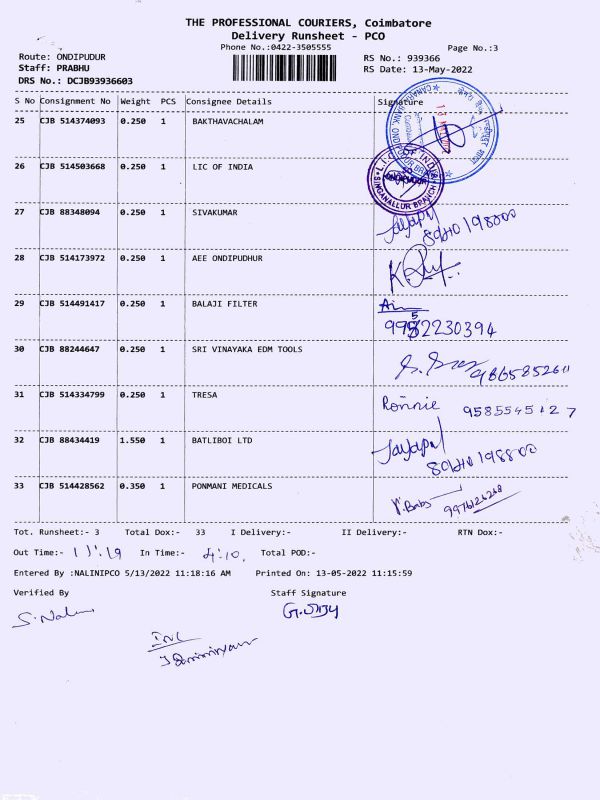 THE PROFESSIONAL COURIERS, Coimbatore
Delivery Runsheet - PCO
Phone No.:0422-3505555
Page No.:3
Route: ONDIPUDUR
RS No.: 939366
Staff: PRABHU
RS Date: 13-May-2022
DRS No.: DCJB93936603
S No Consignment No Weight PCS Consignee Details Signature
25 CJB 514374093 0.250 1 BAKTHAVACHALAM
26 CJB 514503668 0.250 1 LIC OF INDIA
SINGANALLUR BRANCH
27 CJB 88348094 0.250 1 SIVAKUMAR
28 CJB 514173972 0.250 1 AEE ONDIPUDHUR
29 CJB 514491417 0.250 1 BALAJI FILTER
30 CJB 88244647 0.250 1 SRI VINAYAKA EDM TOOLS
31 CJB 514334799 0.250 1 TRESA Ronnie 9585545127
32 CJB 88434419 1.550 1 BATLIBOI LTD
33 CJB 514428562 0.350 1 PONMANI MEDICALS
Tot. Runsheet:- 3 Total Dox:- 33 I Delivery:- II Delivery:- RTN Dox:-
Out Time:- 11:19 In Time:- 4:10. Total POD:-
Entered By :NALINIPCO 5/13/2022 11:18:16 AM Printed On: 13-05-2022 11:15:59
Verified By Staff Signature